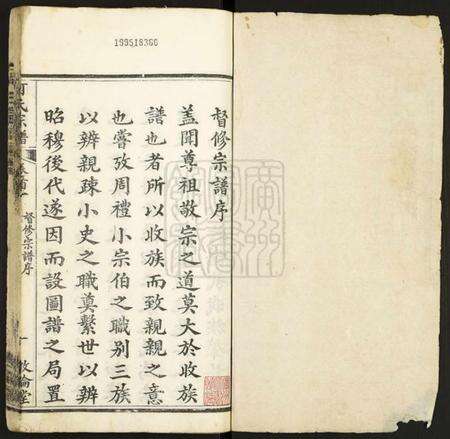 199518360
督修宗譜序
蓋聞尊祖敬宗之道莫大於收族
譜也者所以收族而致親親之意
也嘗攷周禮小宗伯之職別三族
以辨親疎小史之職奠繫世以辨
昭穆後代遂因而設圖譜之局置
氏宗譜
督修宗譜序
一
敦倫堂